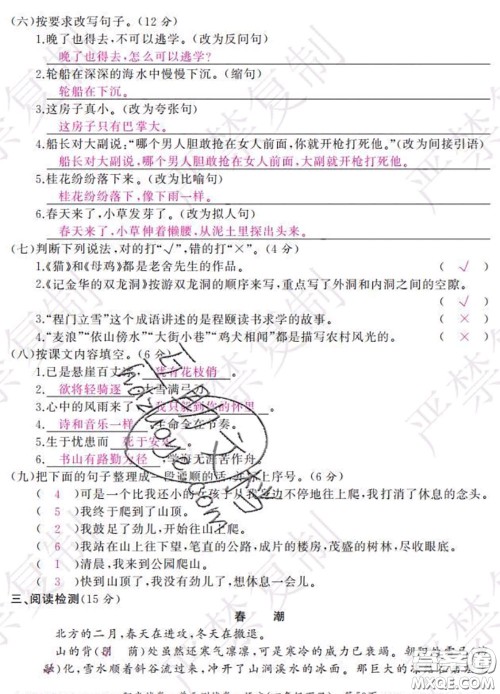 (六)按要求改写句子。(12分)
1.晚了也得去,不可以逃学。(改为反问句)
晚了也得去,怎么可以逃学?
2.轮船在深深的海水中慢慢下沉。(缩句)
轮船在下沉。
3.这房子真小。(改为夸张句)
这房子只有巴掌大。
4.船长对大副说:“哪个男人胆敢抢在女人前面,你就开枪打死他。”(改为间接引语)
船长对大副说,哪个男人胆敢抢在女人前面,大副就开枪打死他。
5.桂花纷纷落下来。(改为比喻句)
桂花纷纷落下,像下雨一样。
6.春天来了,小草发芽了。(改为拟人句)
春天来了,小草伸着懒腰,从泥土里探出头来。
(七)判断下列说法,对的打“√”,错的打“×”。(4分)
1.《猫》和《母鸡》都是老舍先生的作品。 ( √ )
2.《记金华的双龙洞》按游双龙洞的顺序来写,重点写了外洞和内洞之间的空隙。
( √ )
3.“程门立雪”这个成语讲述的是程颐读书求学的故事。 ( × )
4.“麦浪”“依山傍水”“大街小巷”“鸡犬相闻”都是描写农村风光的。 ( × )
(八)按课文内容填空。(6分)
1.已是悬崖百丈冰,犹有花枝俏。
2.欲将轻骑逐,大雪满弓刀。
3.心中的风雨来了,我只躲到你的怀里。
4.诗和音乐一样,生命全在节奏。
5.生于忧患而死于安乐。
6.书山有路勤为径,学海无涯苦作舟。
(九)把下面的句子整理成一段通顺的话,标上序号。(6分)
( 4 )可是一个比我还小的女孩子从我身边不停地往上爬,我打消了休息的念头。
( 5 )我终于爬到了山顶。
( 2 )我鼓足了劲儿,开始往山上爬。
( 6 )我站在山上往下望,笔直的公路,成片的楼房,茂盛的树林,尽收眼底。
( 1 )清晨,我来到公园爬山。
( 3 )快到山顶了,我没有劲儿了,想往回走。
三、阅读检测(15分)
春 潮
北方的二月,春天在进攻,冬天在撤退。
山的背(阴 荫)处虽然还寒气凛凛,可是寒冷的威力已衰竭。
)化,雪水顺着斜谷流过来,冲开了山涧溪的冰层。那巨大的
严禁复制